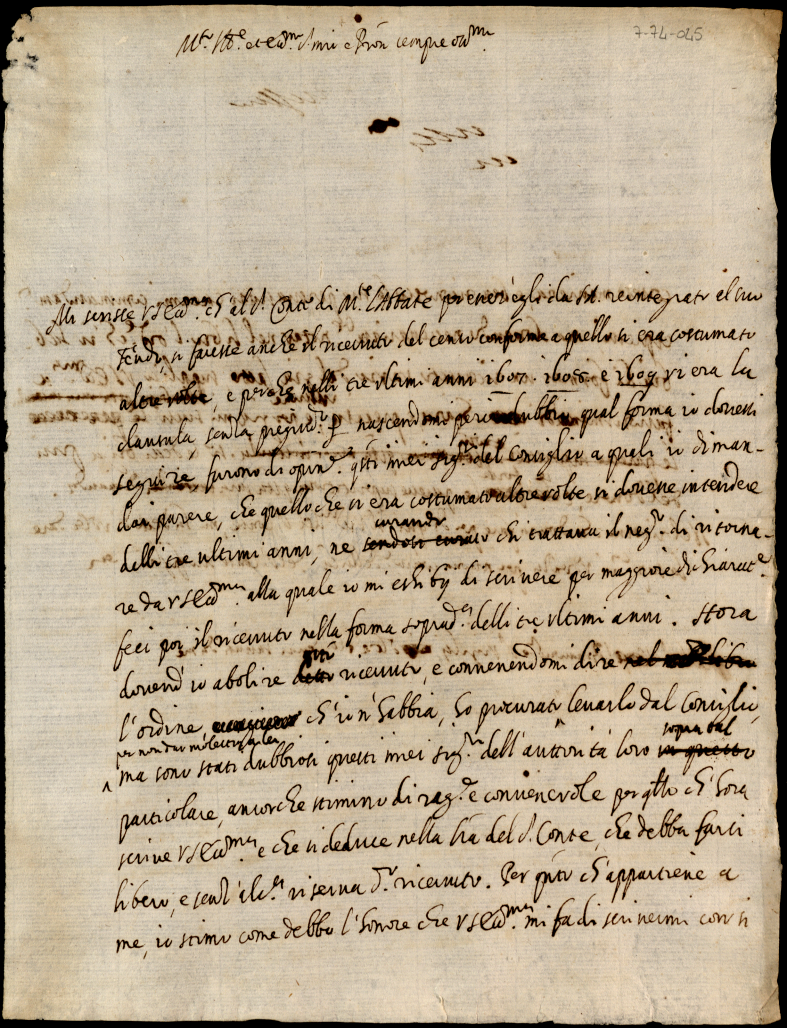 7-74-045
Mi scrisse V S Ecc.ma ch'al S. Conte di M.te l'Abbate per esser egli da reintegrato el suo
feudo, si facesse anche il ricevuto del censo conforme a quello si era costumato
altre volte, e perche nelli tre ultimi anni 1607. 1608. e 1609 vi era la
clausula, senza pregiud.o nascendomi perciò dubbio qual forma io dovessi
seguire furono di opin.e q.sti miei sig.ri del Consiglio a quali io diman-
dai parere, che quello che si era costumato altre volte si dovesse intendere
delli tre ultimi anni, ne
curando
chi trattava il neg.o di ritorna-
re da V S Ecc.ma alla quale io mi eshibij di scrivere per maggiore dichiarat.e
feci poi il ricevuto nella forma soprad.a delli tre ultimi anni. Hora
dovend'io abolire
q.sto
ricevuto, e convenendomi dire
l'ordine ch'io n'habbia, ho procurato levarlo dal Consiglio,
per non dar molestia a lei
ma sono stati dubbiosi questi miei sig.ri dell'auttorità loro
sopra tal
particolare, ancorche stimino di rag.e e convenevole per q.llo ch'hora
scrive V S Ecc.ma e che si deduce nella l.ra del S. Conte, che debba farsi
libero, e senz'alc.a riserva d.o ricevuto. Per q.nto ch'appartiene a
me, io stimo come debbo l'honore che V S Ecc.ma mi fa di scrivermi con si